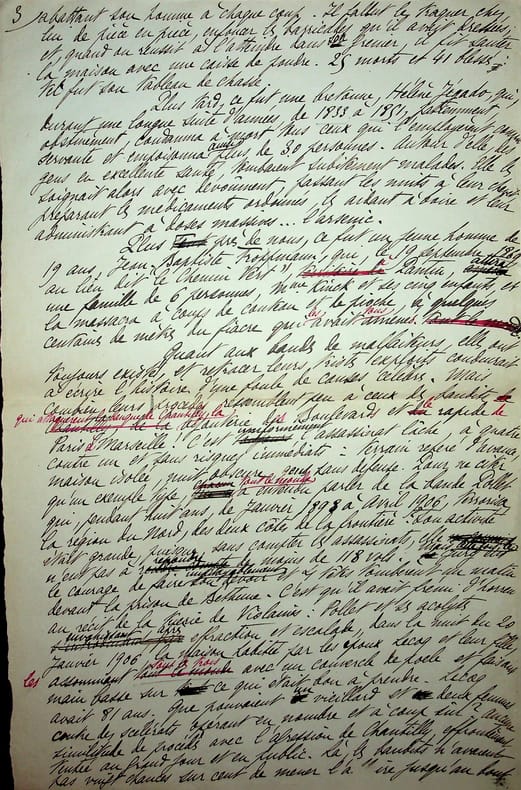 3 abattant son homme à chaque coup. Il fallut le traquer chez
lui de pièce en pièce, enfoncer les barricades qu'il avait dressées
et, quand on réussit à l'atteindre dans son grenier, il fit sauter
la maison avec une caisse de poudre. 25 morts et 41 blessés :
tel fut son tableau de chasse.
Plus tard, ce fut une bretonne, Hélène Jégado qui,
durant une longue suite d'années, de 1833 à 1851, patiemment,
obstinément, condamna à mort tous ceux qui l'employaient comme
servante et empoisonna ainsi plus de 30 personnes. Autour d'elle, des
gens en excellente santé tombaient subitement malades. Elle les
soignait alors avec dévouement, passant les nuits à leur chevet,
préparant les médicaments ordonnés, les aidant à boire et leur
administrant à doses massives... l'arsenic.
Plus près de nous, ce fut un jeune homme de
19 ans, Jean-Baptiste Troppmann, qui, le 19 septembre 1869
au lieu dit le "Chemin Vert", attira à Pantin
une famille de 6 personnes, Mme Kinck et ses cinq enfants, et
la massacra à coups de couteau et de pioche, à quelques
centaines de mètres du fiacre qui les avait tous amenés.
Quant aux bandes de malfaiteurs, elles ont
toujours existé, et retracer leurs tristes exploits conduirait
à écrire l'histoire d'une foule de causes célèbres. Mais
combien leurs procédés ressemblent peu à ceux des bandits
qui attaquèrent la banque de Chantilly, la
bijouterie des Boulevards et le rapide de
Paris à Marseille ! C'est l'assassinat lâche à quatre
contre un et sans risques immédiats : terrain repéré d'avance,
maison isolée, nuit obscure, gens sans défense. Pour ne citer
qu'un exemple type, tout le monde a entendu parler de la bande Pollet
qui, pendant huit ans, de janvier 1898 à avril 1906, terrorisa
la région du Nord, des deux côtés de la frontière. Son activité
était grande, puisque, sans compter les assassinats,
n'eut pas à moins de 118 vols.
le courage de faire son devoir et 4 têtes tombèrent un matin
devant la prison de Béthune. C'est qu'il avait frémi d'horreur
au récit de la tuerie de Violaines : Pollet et ses acolytes
envahissant après effraction et escalade, dans la nuit du 20
janvier 1906, la maison habitée par les époux Lecocq et leur fille,
les assommant tous les trois avec un couvercle de poêle et faisant
main basse sur ce qui était bon à prendre. Lecocq
avait 81 ans. Que pouvaient un vieillard et deux femmes
contre des scélérats opérant en nombre et à coup sûr ? Aucune
similitude de procédés avec l'agression de Chantilly, effrontément
tentée au grand jour et en public. Là les bandits n'avaient
pas vingt chances sur cent de mener l'affaire jusqu'au bout